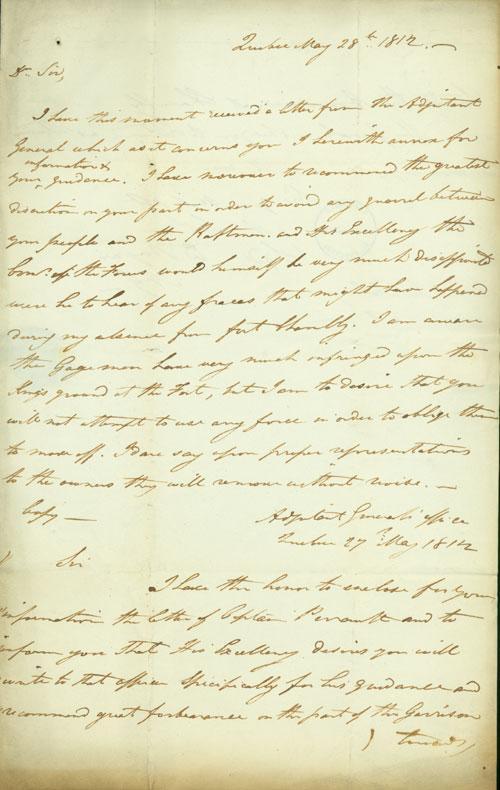 Quebec May 28th 1812. —
Dr Sir,
I have this moment received a letter from the Adjutant
General which as it concerns you I herewith annex for
information &
your guidance. I have moreover to recommend the greatest
discretion on your part in order to avoid any quarrel between
your people and the Raftsmen and His Excellency the
Comr. of the Forces would himself be very much disappointed
were he to hear of any fracas that might have happened
during my absence from fort Chambly. I am aware
the Cagemen have very much infringed upon the
Kings ground at the Fort, but I am to desire that you
will not attempt to use any force in order to oblige them
to move off. I dare say upon proper representations
to the owners they will remove without noise. —
Copy —
Adjutant Generals office
Quebec 27th May 1812
Sir
I have the honor to enclose for your
information the letter of Captain Perrault and to
inform you that His Excellency desires you will
write to that officer specifically for his guidance and
recommend great forbearance on the part of the Garrison
towards